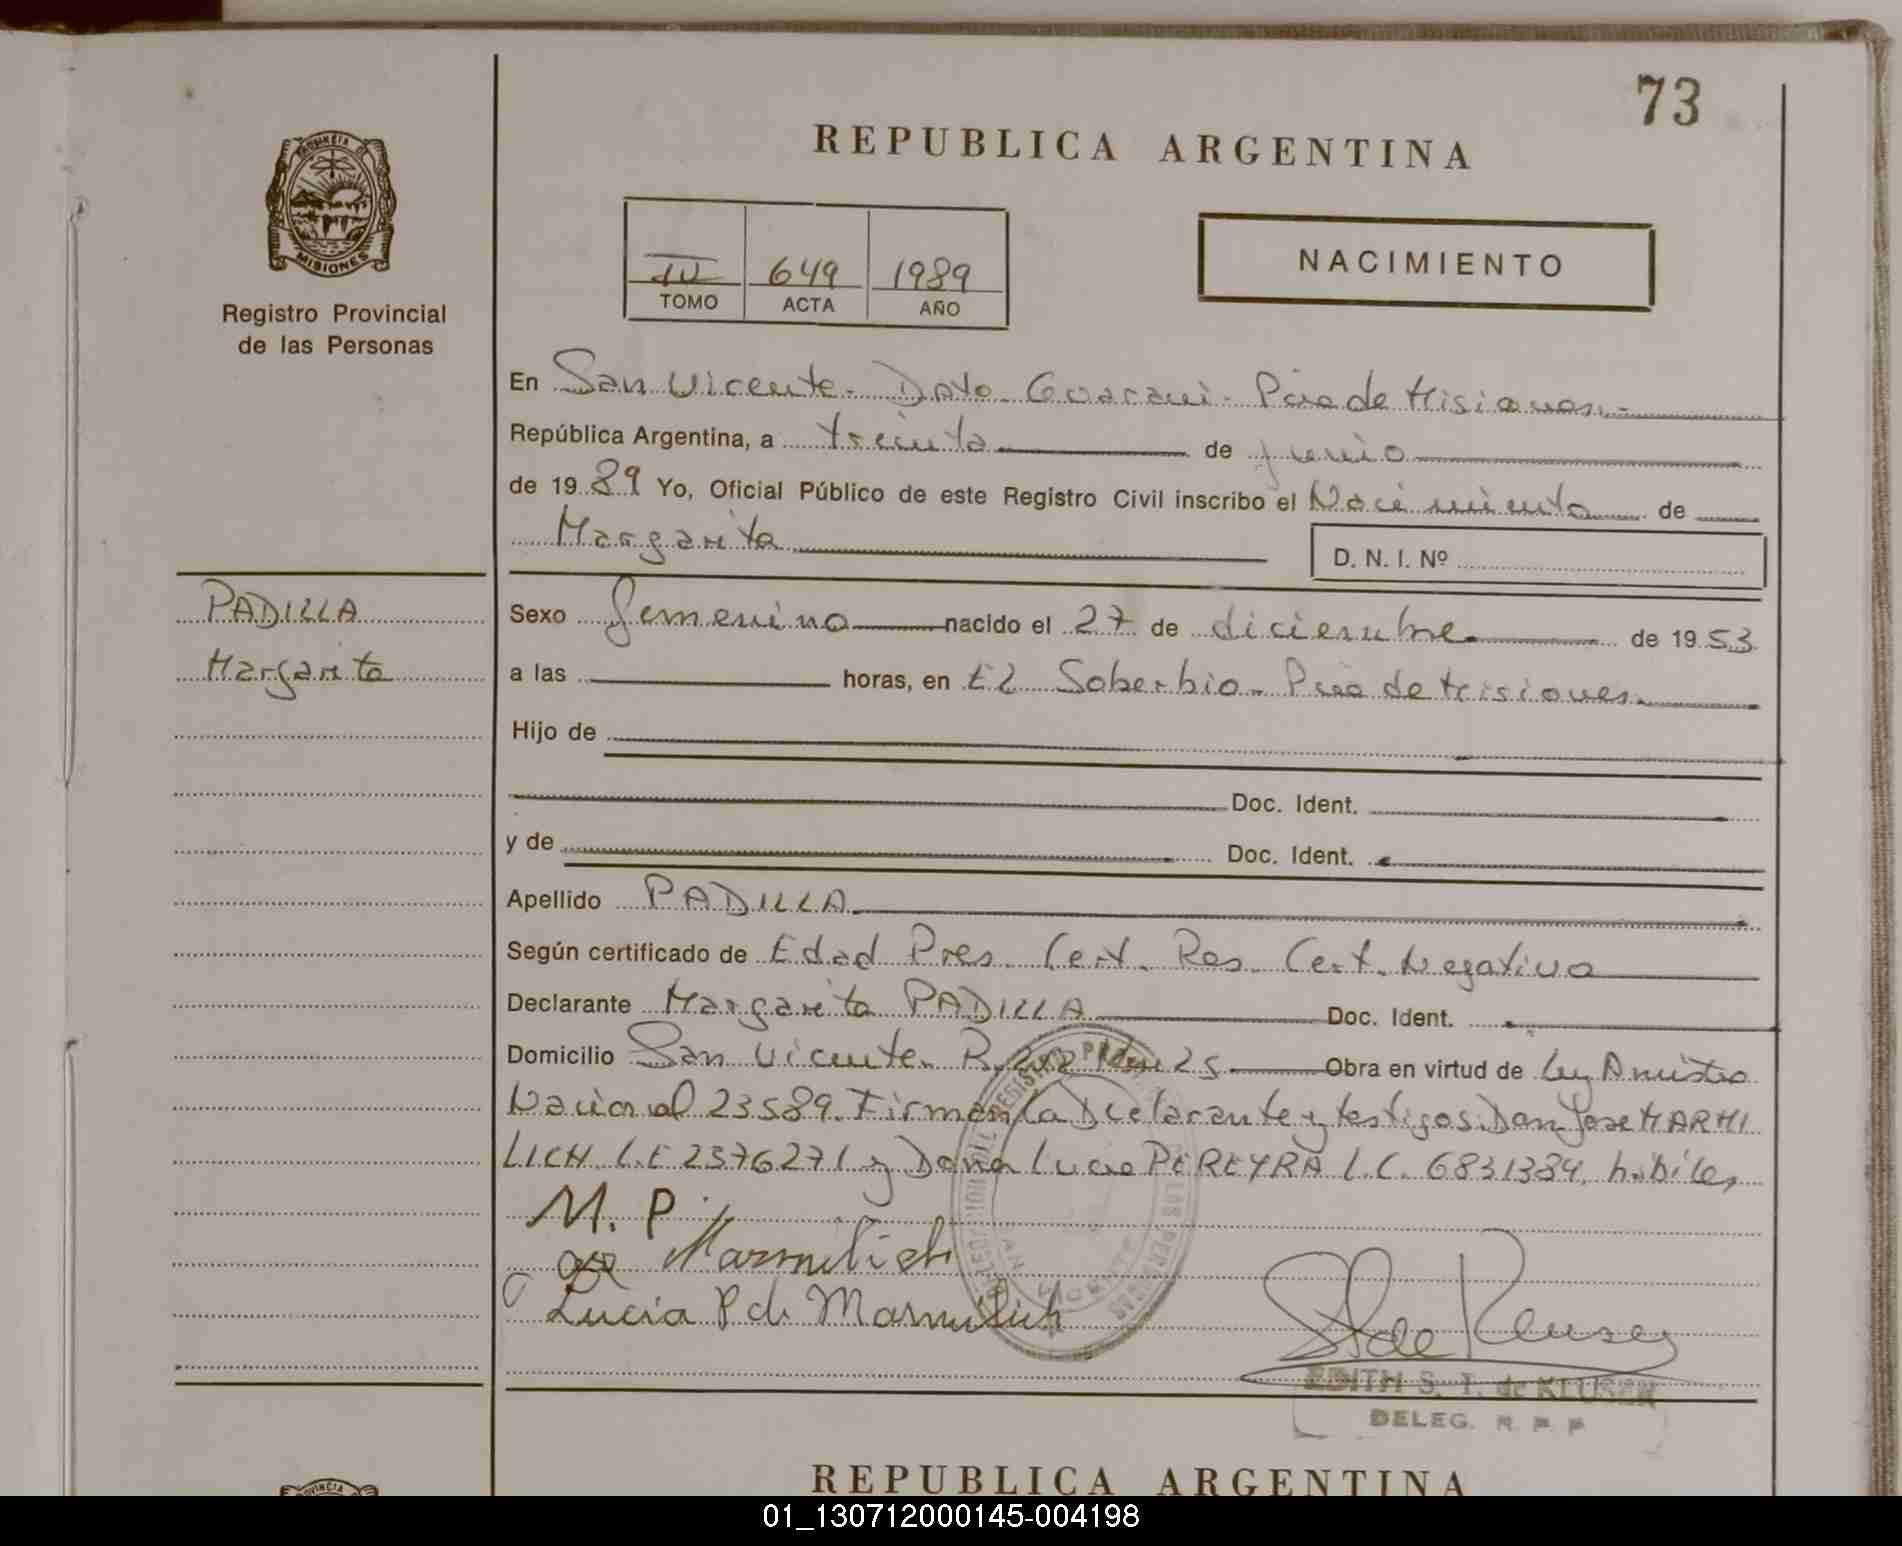 73
REPUBLICA ARGENTINA
PROVINCIA DE
MISIONES
Registro Provincial
de las Personas
IV 649 1989
TOMO ACTA AÑO
NACIMIENTO
En San Vicente - Dpto Guarani - Pcia de Misiones.-
República Argentina, a treinta de junio
de 1989 Yo, Oficial Público de este Registro Civil inscribo el Nacimiento de
Margarita
D. N. I. Nº
PADILLA
Margarita
Sexo femenino nacido el 27 de diciembre de 1953
a las horas, en El Soberbio - Pcia de Misiones.
Hijo de
Doc. Ident.
y de Doc. Ident.
Apellido PADILLA
Según certificado de Edad Pres. Cert. Res. Cert. Negativo
Declarante Margarita PADILLA Doc. Ident.
Domicilio San Vicente. R. 25 Obra en virtud de Ley Amistia
Nacional 23589. Firman la Declarante y testigos. Don Jose MARMI
LICH L.E 2576271 y Doña Lucia PEREYRA L.C. 6831384, hábiles,
M. P
Marmilich
Lucia P de Marmilich
SAN VICENTE
EDITH S. T. de KLUSEN
DELEG. R. P. P
REPUBLICA ARGENTINA
01_130712000145-004198